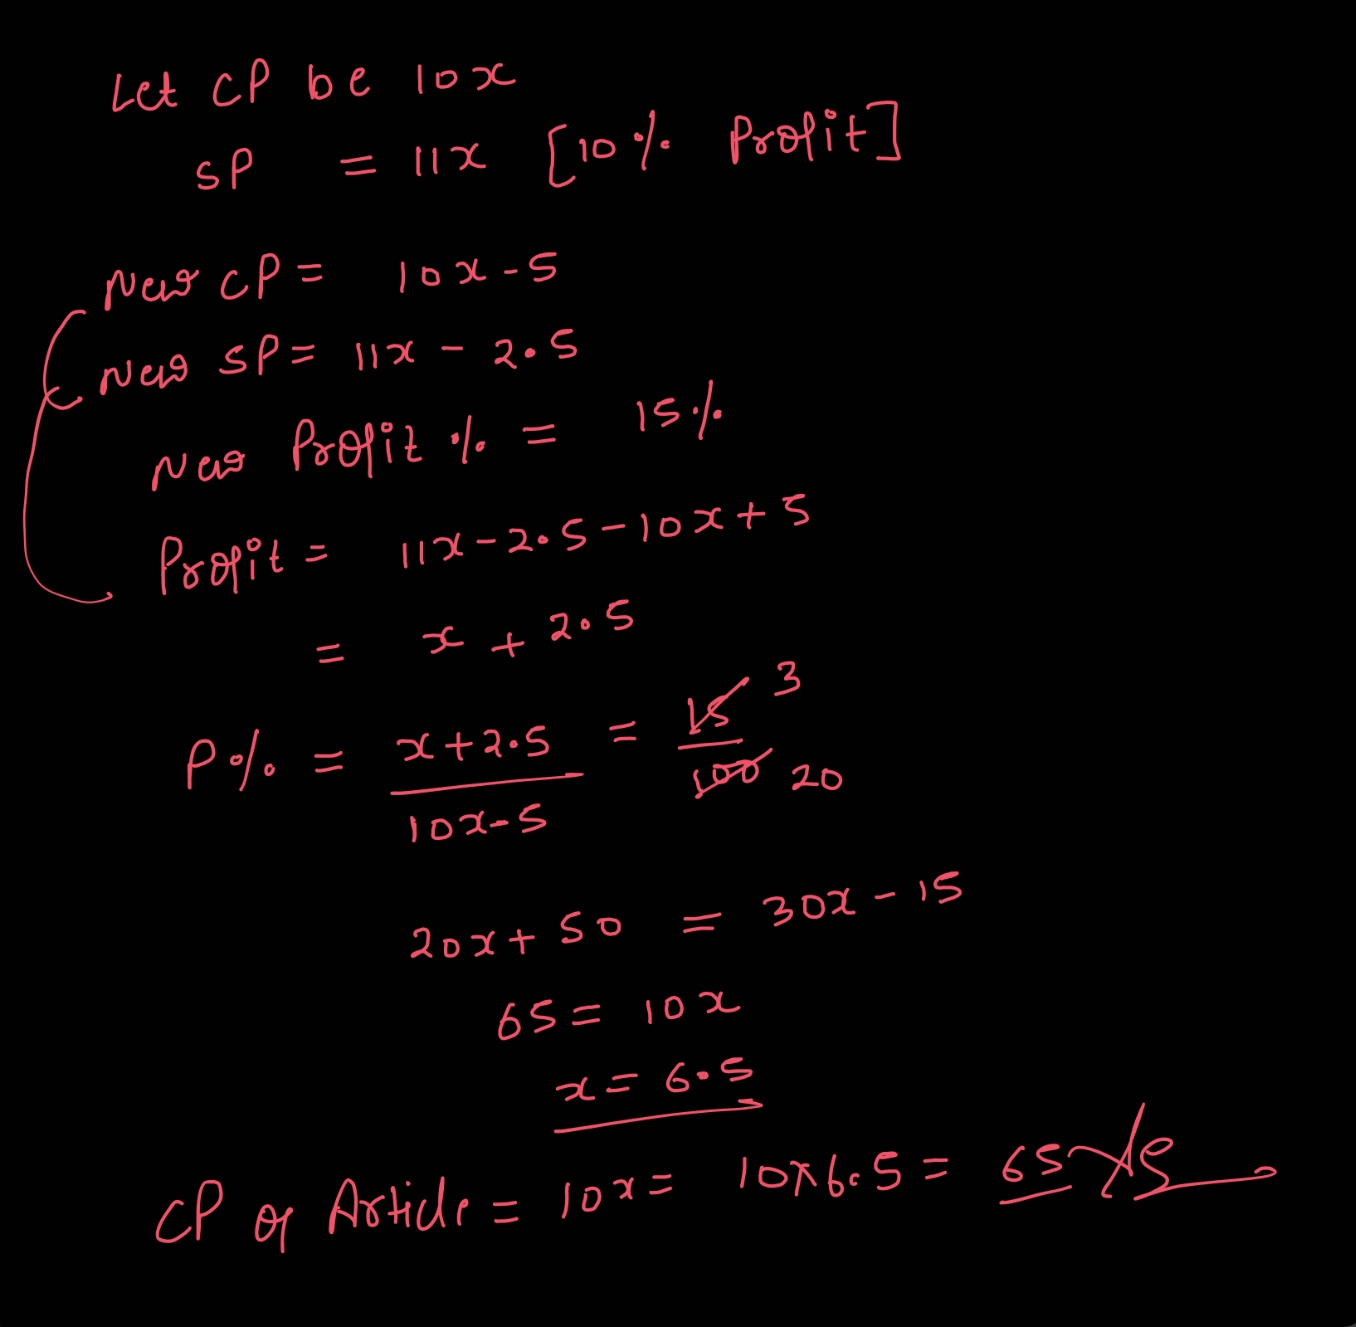 Let CP be 10x
SP = 11x [10% Profit]
New CP = 10x - 5
New SP = 11x - 2.5
New Profit % = 15%
Profit = 11x - 2.5 - 10x + 5
= x + 2.5
P% = x + 2.5 / 10x - 5 = 15 / 100 3 / 20
20x + 50 = 30x - 15
65 = 10x
x = 6.5
CP of Article = 10x = 10 x 6.5 = 65